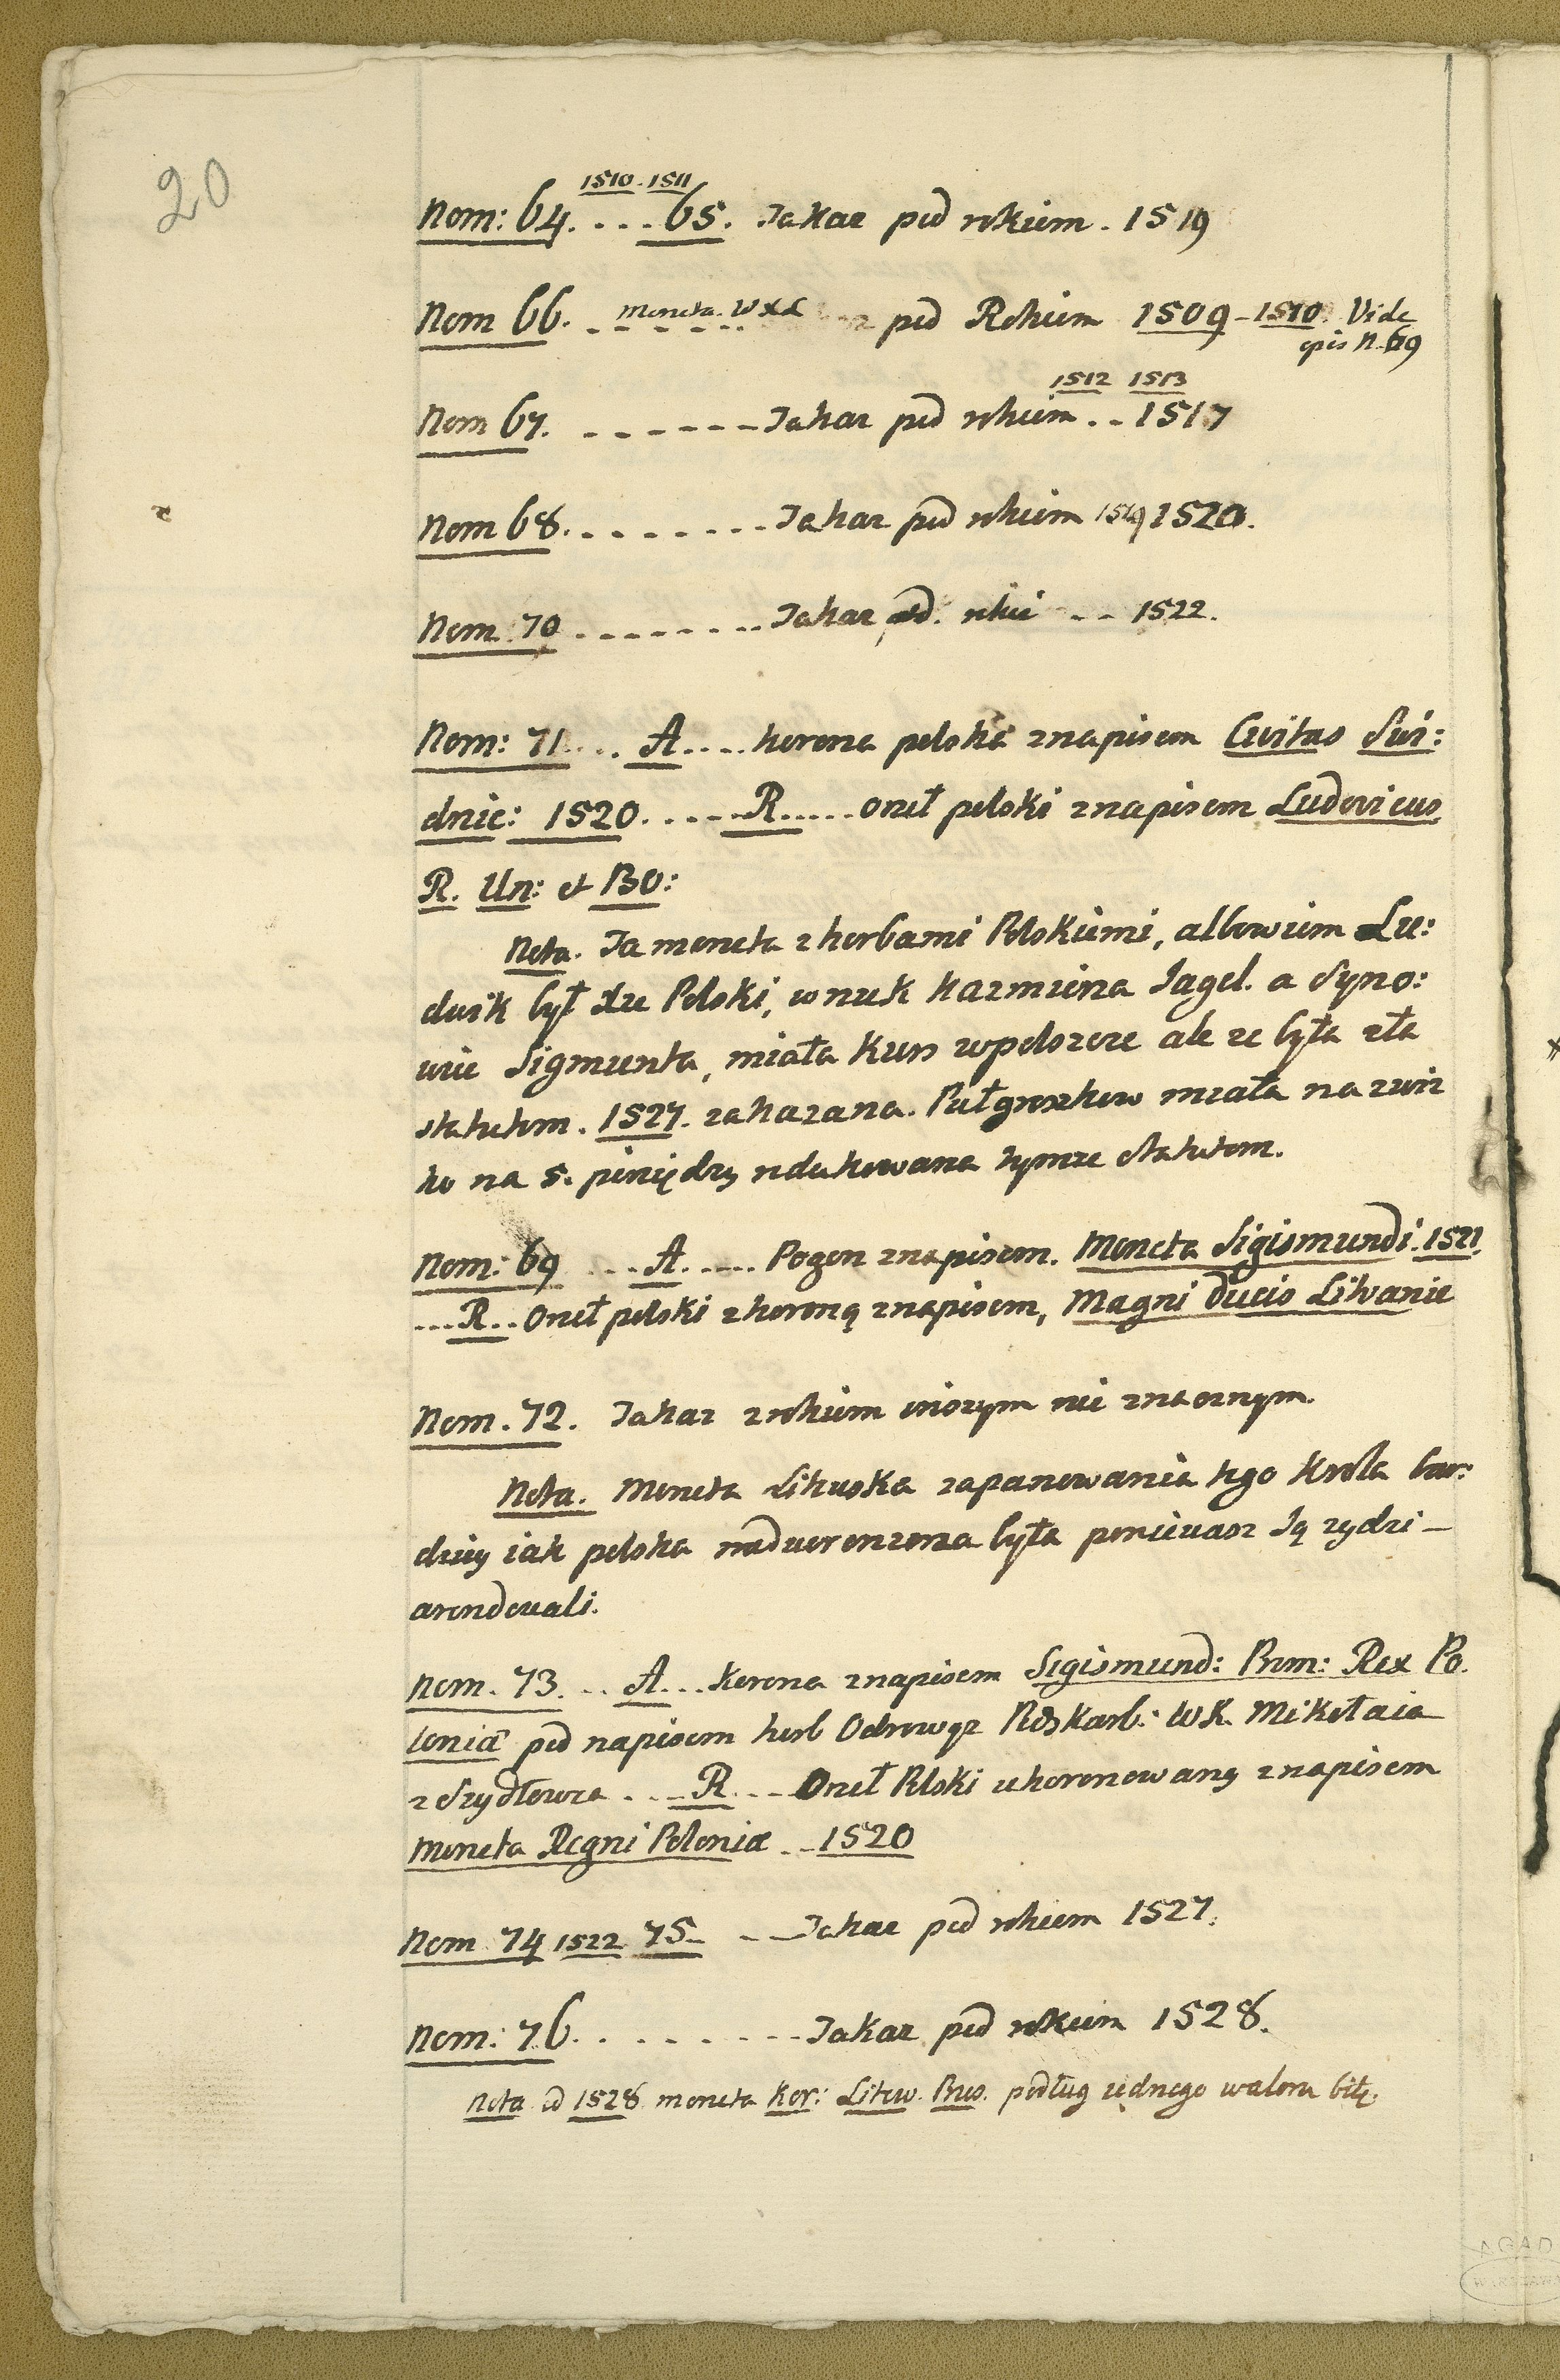 20
1510. 1511
Nom: 64. ... 65. Takaż pod rokiem. 1519
Nom 66. ... Moneta. WXL pod Rokiem 1509 - 1510. Vide
opis N. 69
1512 1513
Nom 67. ------- Takaż pod rokiem .. 1517
Nom 68. ........ Takaż pod rokiem 1519 1520.
Nom. 70 ......... Takaż pod. rokie -- 1522.
Nom: 71 .... A .... korona polska znapisem Civitas Swi:
dnic: 1520. ..... R ..... orzeł polski znapisem Ludovicus
R. Un: et BO:
Nota. Ta moneta z herbami Polskiemi, albowiem Lu:
dwik był xże Polski, wnuk Kazmirza Jagel. a Syno:
wie Sigmunta, miała kurs wpolszcze ale że była zła
statutem. 1527. zakazana. Pułgroszkow miała nazwiz
ko na 5. pieniędzy redukowana tymże statutem.
Nom: 69 ... A ..... Pogon znapisem. Moneta Sigismundi. 1521.
... R .. Orzeł polski z koroną znapisem, Magni Ducis Litvanie
Nom. 72. Takaż z rokiem inszym nie znacznym.
Nota. Moneta Litwska zapanowania tego Krola bar:
dziey iak polska nadwerenzona była ponieważ Ją zydzi -
arendowali.
Nom. 73. .. A ... Korona znapisem Sigismund: Prim: Rex Po.
loniæ pod napisem herb Odrowąz Podskarb: WK. Mikołaia
z Szydłowca .... R ... Orzeł Polski ukoronowany znapisem
Moneta Regni Poloniæ .. 1520
Nom. 74 1522 75 - -- Takaż pod rokiem 1527.
Nom: 76. ......... Takaż pod rokiem 1528.
Nota od 1528 moneta Kor: Litew. Prus. podług iednego waloru bitę.
AGAD
WARSZAWA